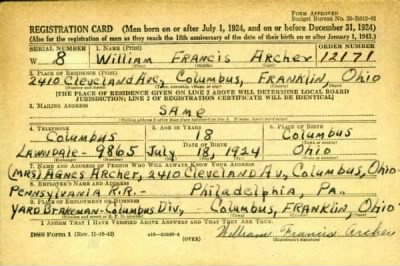 FORM APPROVED
Budget Bureau No. 33-R012-42
REGISTRATION CARD (Men born on or after July 1, 1924, and on or before December 31, 1924)
(Also for the registration of men as they reach the 18th anniversary of the date of their birth on or after January 1, 1943.)
SERIAL NUMBER 1. NAME (Print) ORDER NUMBER
W 8 William Francis Archer 12171
2. PLACE OF RESIDENCE (Print)
2410 Cleveland Av, Columbus, Franklin, Ohio
[THE PLACE OF RESIDENCE GIVEN ON LINE 2 ABOVE WILL DETERMINE LOCAL BOARD
JURISDICTION; LINE 2 OF REGISTRATION CERTIFICATE WILL BE IDENTICAL]
3. MAILING ADDRESS
SAME
4. TELEPHONE 5. AGE IN YEARS 6. PLACE OF BIRTH
Columbus 18 Columbus
DATE OF BIRTH
Lawndale - 9865 July 18 1924 Ohio
7. NAME AND ADDRESS OF PERSON WHO WILL ALWAYS KNOW YOUR ADDRESS
(Mrs) Agnes Archer, 2410 Cleveland Av, Columbus, Ohio
8. EMPLOYER'S NAME AND ADDRESS
Pennsylvania R.R. - Philadelphia, Pa.
9. PLACE OF EMPLOYMENT OR BUSINESS
Yard Brakeman - Columbus Div, Columbus, Franklin, Ohio
I AFFIRM THAT I HAVE VERIFIED ABOVE ANSWERS AND THAT THEY ARE TRUE.
DSS Form 1 (Rev. 11-16-42) (OVER) William Francis Archer
(Registrant's signature)